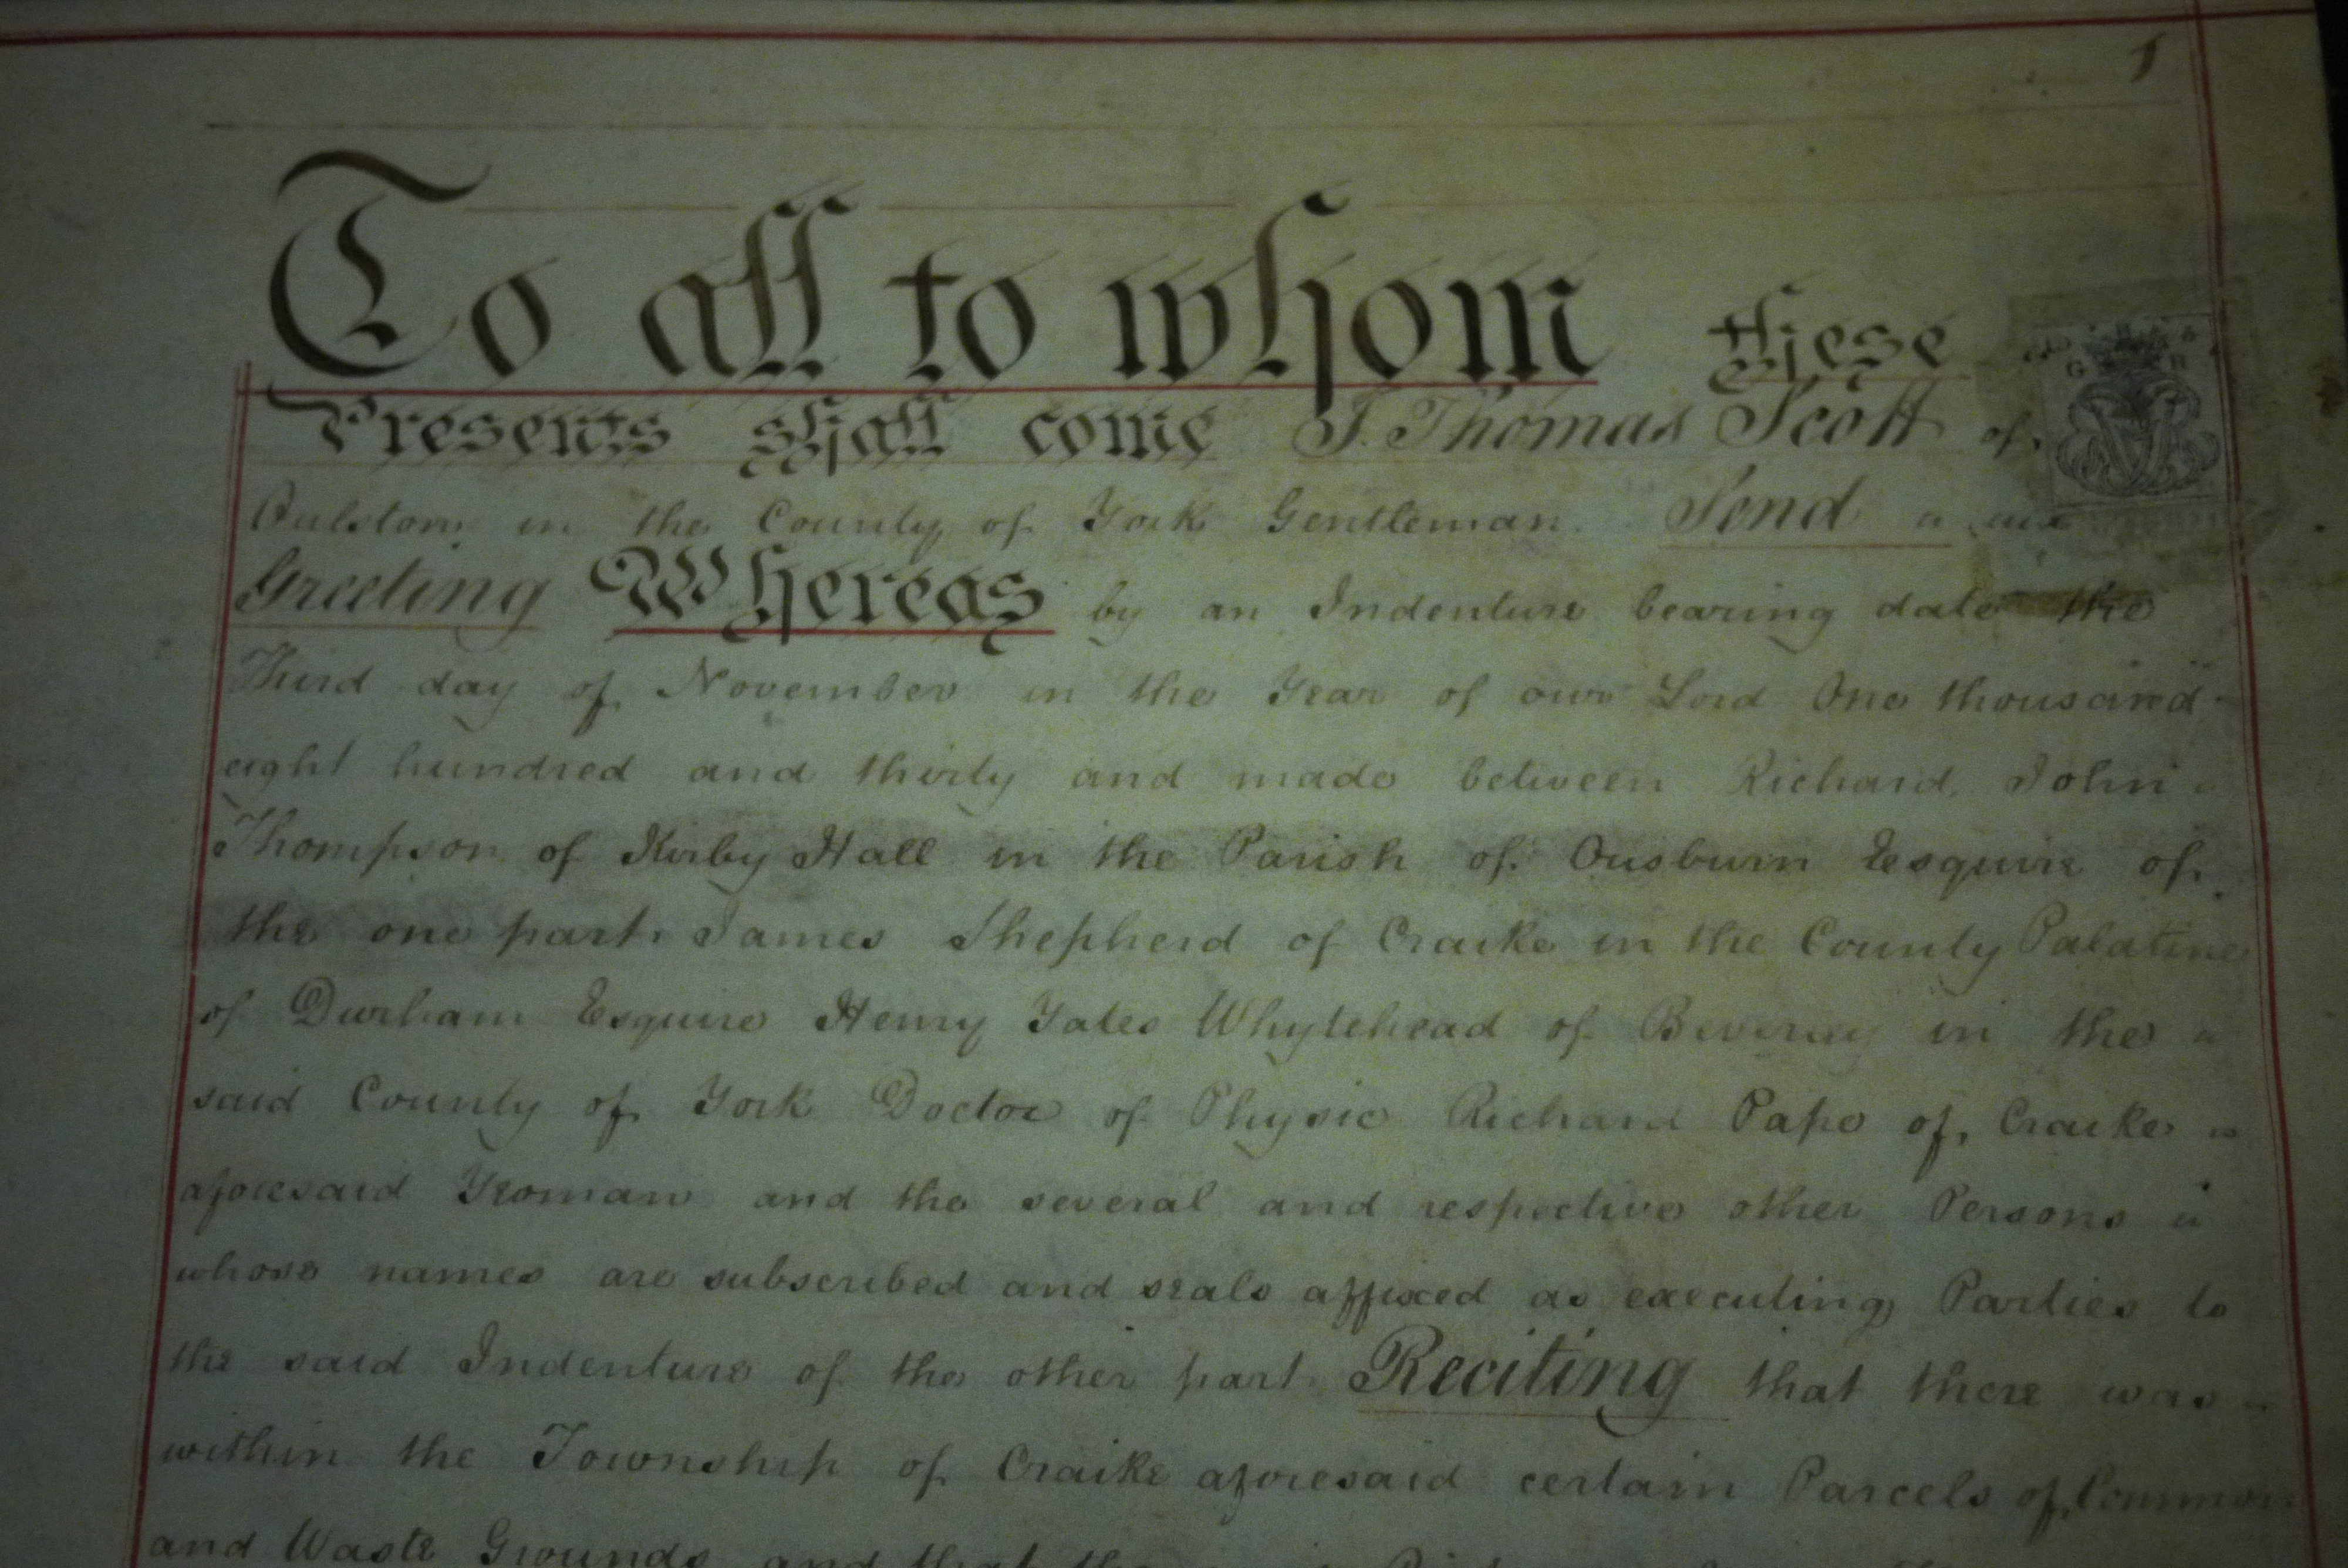 1
To all to whom these
Presents shall come I Thomas Scott of
Oulston in the County of York Gentleman Send
G R
Greeting Whereas by an Indenture bearing date the
Third day of November in the Year of our Lord One thousand
eight hundred and thirty and made between Richard John
Thompson of Kirby Hall in the Parish of Ousburn Esquire of
the one part James Shepherd of Craike in the County Palatine
of Durham Esquire Henry Yates Whytehead of Beverley in the
said County of York Doctor of Physic Richard Pape of Craike
aforesaid Yeoman and the several and respective other Persons
whose names are subscribed and seals affixed as executing Parties to
the said Indenture of the other part Reciting that there was
within the Township of Craike aforesaid certain Parcels of Common
and Waste Grounds and that the